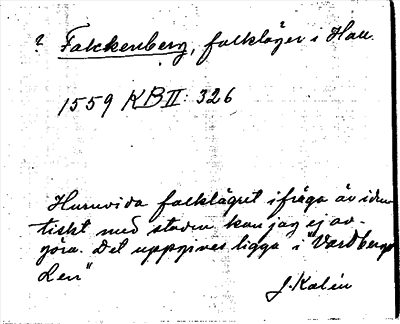 ? Falckenberg, falkläger i Hall.
1559 KB II: 326
Huruvida falklägret ifråga är iden-
tiskt med staden kan jag ej av-
göra. Det uppgives ligga i "Vardbergs
Len"
J. Kalén